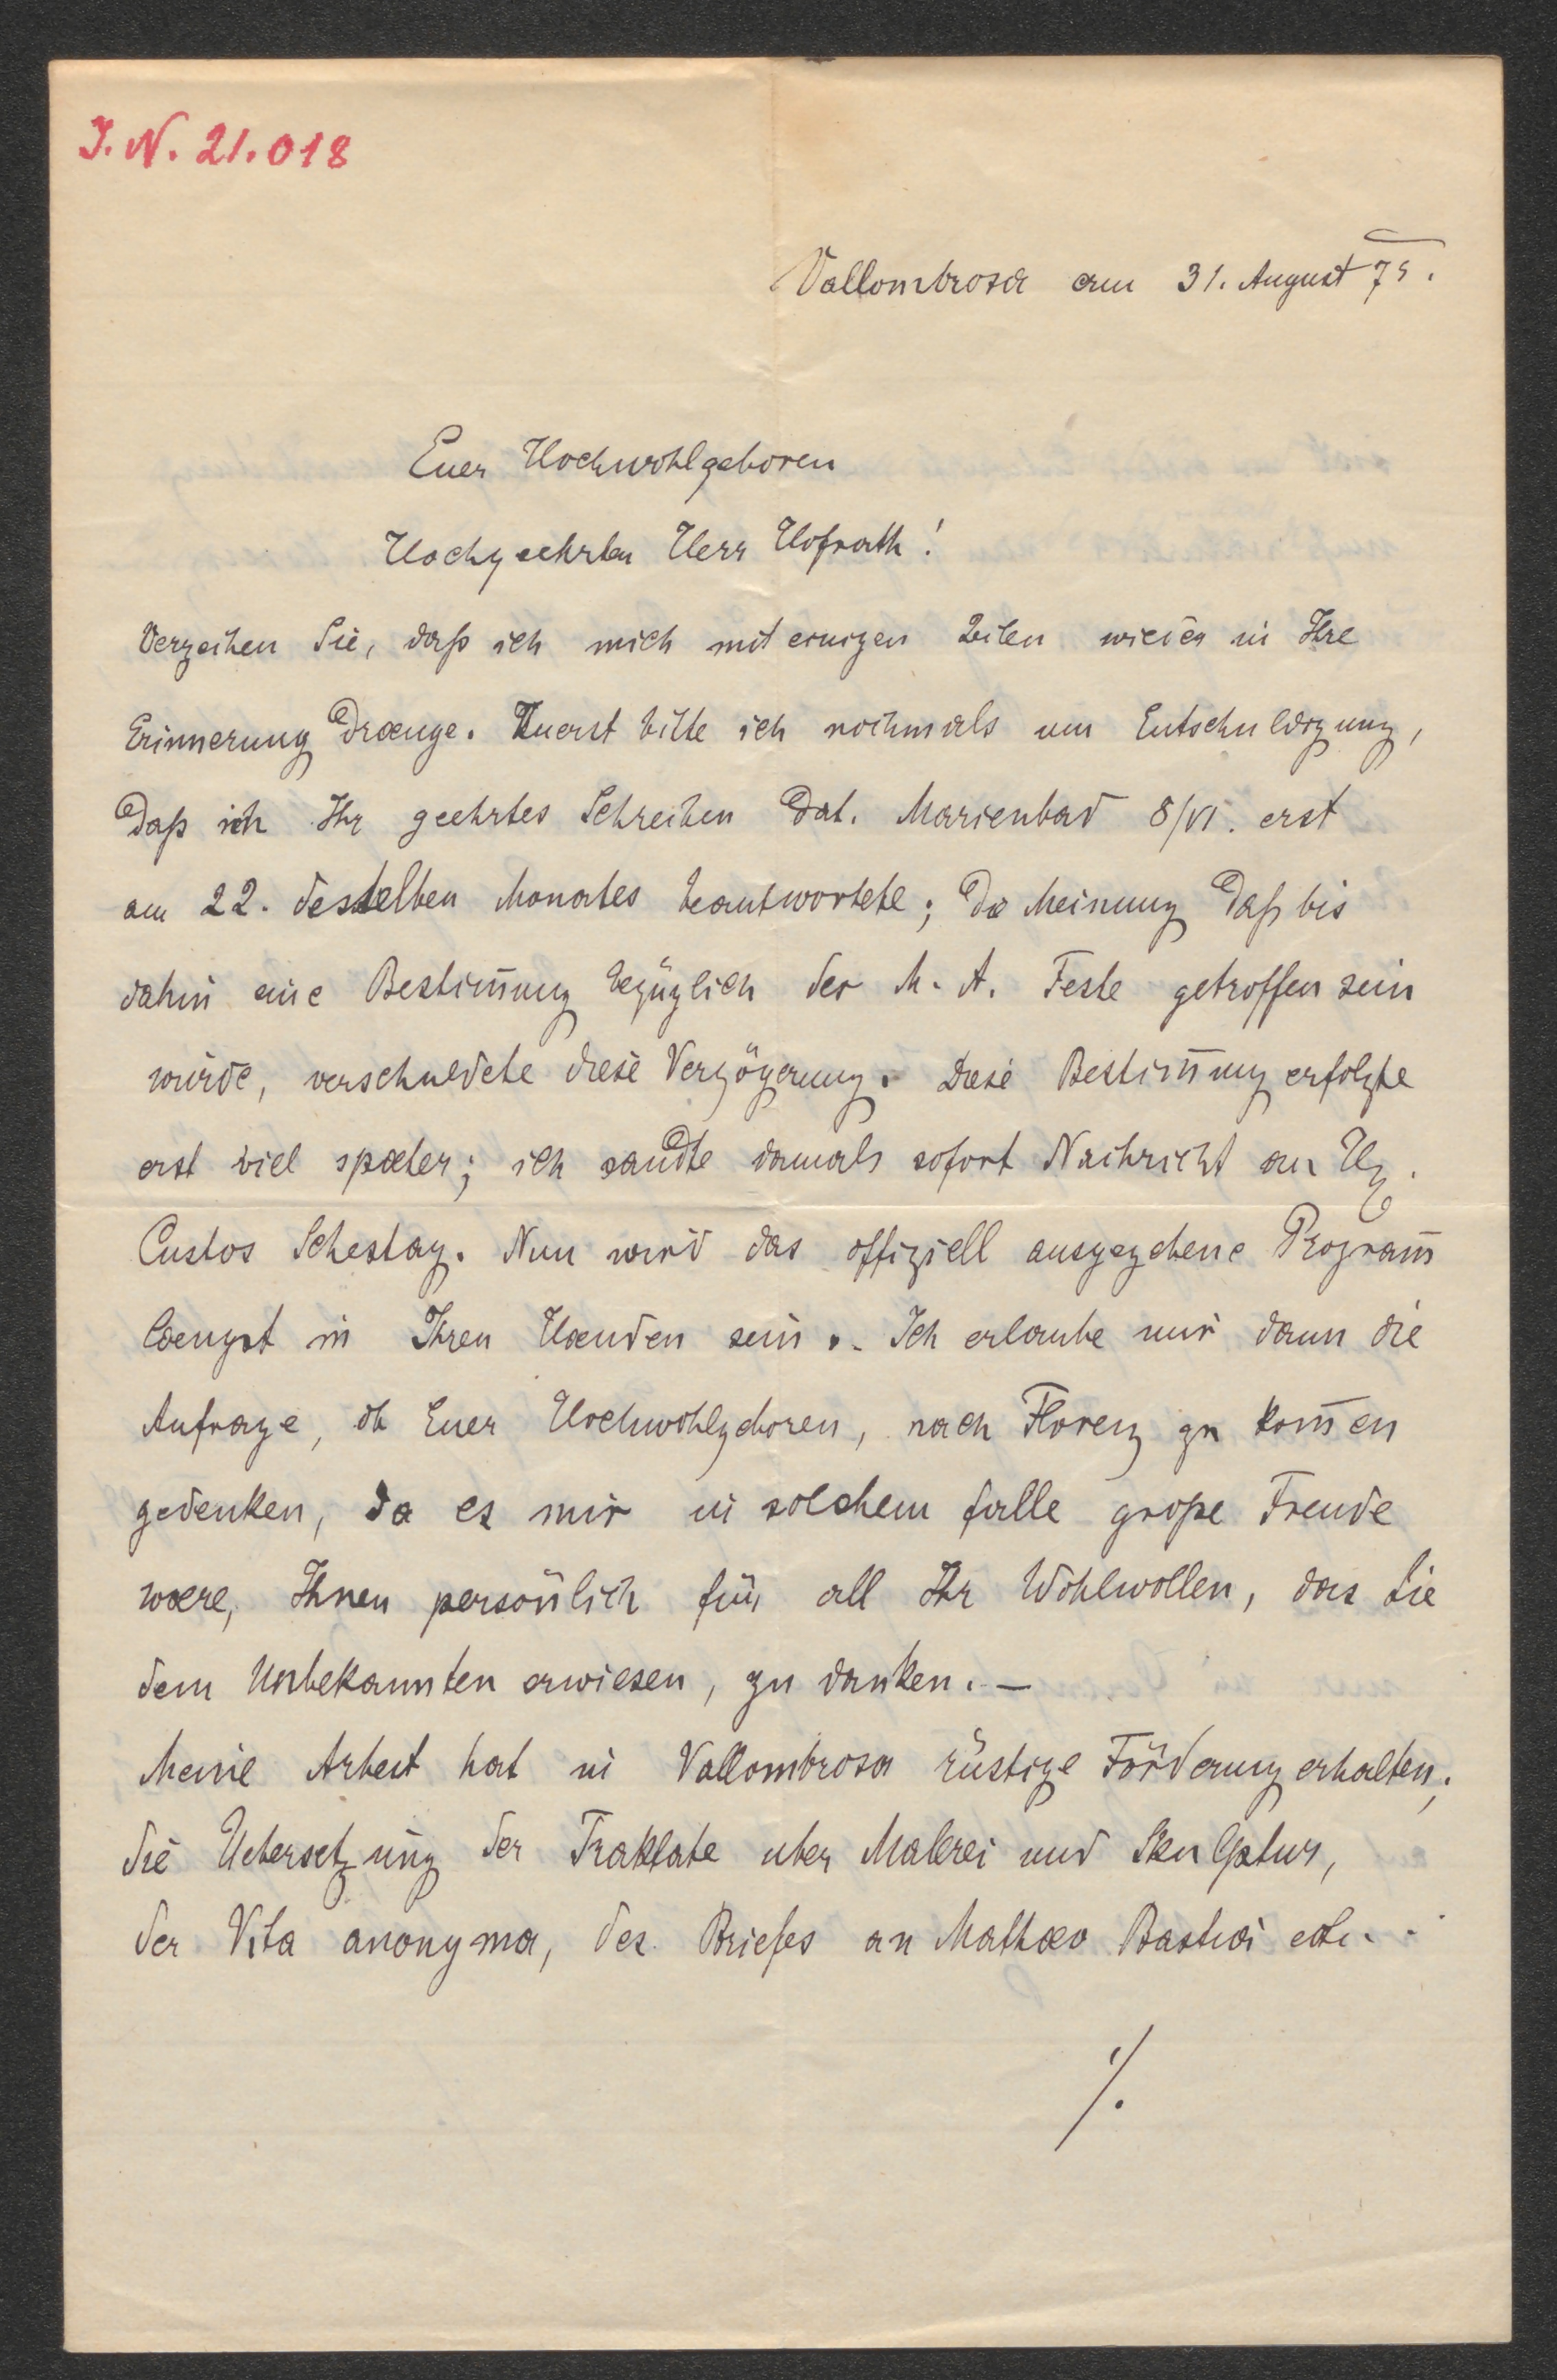 J. N. 21.018
Vallombrosa am 31. August 75.
Euer Hochwohlgeboren
Hochgeehrter Herr Hofrath!
Verzeihen Sie, daß ich mich mit einigen Zeilen wieder in Ihre
Erinnerung draenge. Zuerst bitte ich nochmals um Entschuldigung,
daß ich Ihr geehrtes Schreiben dat. Marienbad 8/VI. erst
am 22. desselben Monates beantwortete; die Meinung daß bis
dahin eine Bestim̄ung bezüglich der M. A. Feste getroffen sein
würde, verschuldete diese Verzögerung. Diese Bestim̄ung erfolgte
erst viel spaeter; ich sandte damals sofort Nachricht an H.
Custos Schestag. Nun wird das offiziell ausgegebene Program̄
laengst in Ihren Haenden sein. – Ich erlaube mir dann die
Anfrage, ob Euer Hochwohlgeboren, nach Florenz zu kom̄en
gedenken, da es mir in solchem falle große Freude
waere, Ihnen persönlich für all Ihr Wohlwollen, das Sie
dem Unbekannten erwiesen, zu danken. –
Meine Arbeit hat in Vallombrosa rüstige Förderung erhalten;
die Uebersetzung der Traktate uber Malerei und Skulptur,
der Vita anonyma, des Briefes an Mathaeo
./.